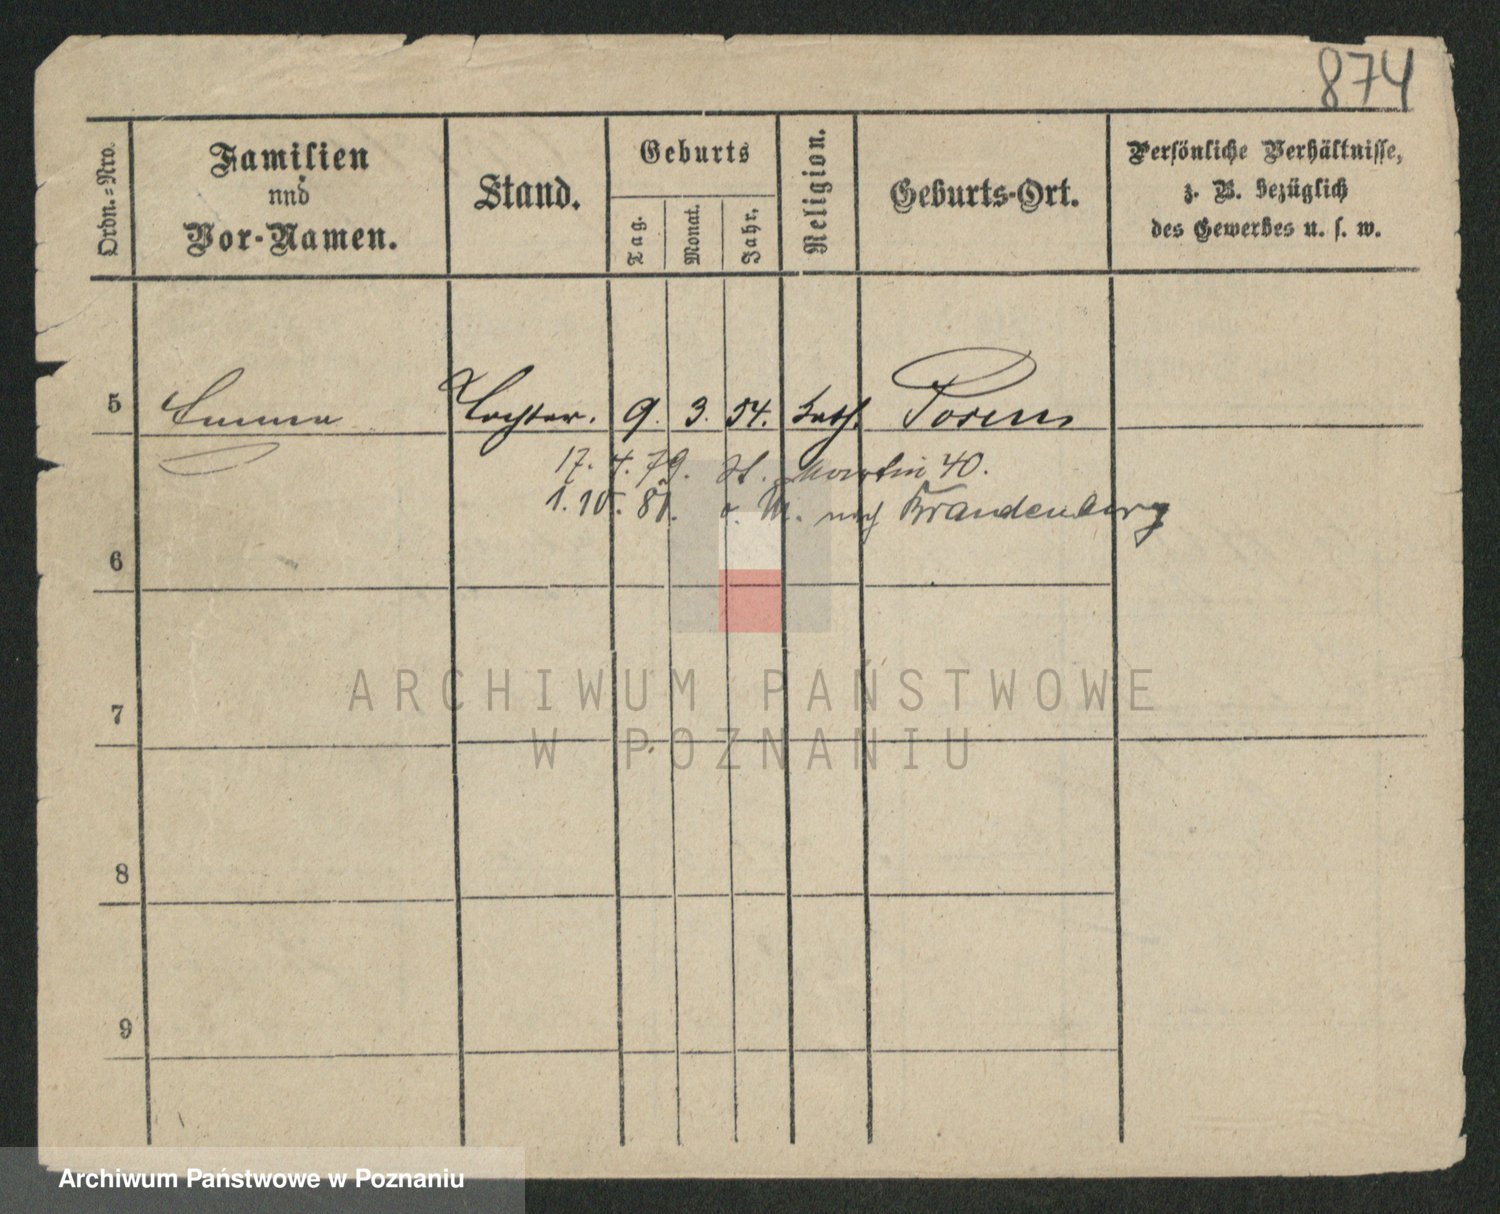 874
Ordn.-Nro.
Familien
und
Vor-Namen.
Stand.
Geburts
Tag.
Monat.
Jahr.
Religion.
Geburts-Ort.
Persönliche Verhältnisse,
z. B. bezüglich
des Gewerbes u. s. w.
5 Emma Tochter. 9. 3. 54. kath. Posen
17. 4. 79. St. Martin 40.
1. 10. 81. v. M. nach Brandenburg
6
7
8
9
ARCHIWUM PAŃSTWOWE
W POZNANIU
Archiwum Państwowe w Poznaniu